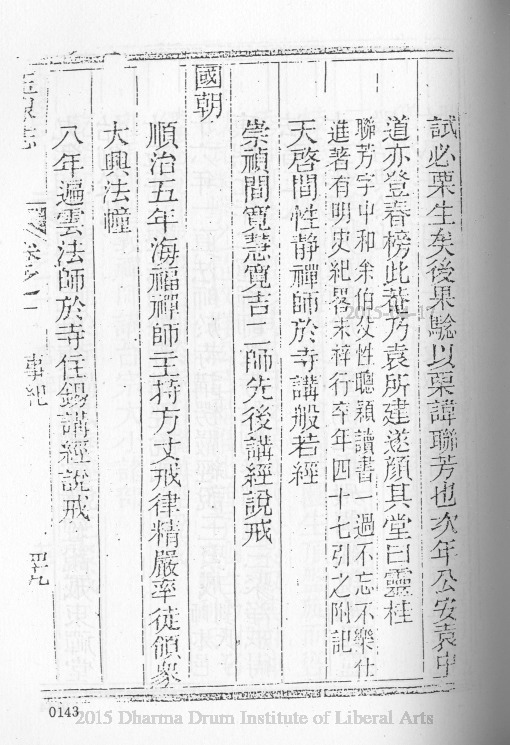 試必栗生矣後果驗以栗諱聯芳也次年公安袁中
道亦登春榜此菴乃袁所建遂顏其堂曰靈桂
聯芳字中和余伯父性聰穎讀書一過不忘不樂仕
進著有明史紀畧未梓行卒年四十七引之附記
天啓間性静禪師於寺講般若經
崇禎間寬慧寬吉二師先後講經說戒
國朝
順治五年海福禪師主持方丈戒律精嚴率徒領衆
大興法幢
八年遍雲法師於寺住錫講經說戒
玉泉志 卷之一 事紀 四九
0143
2015 Dharma Drum Institute of Liberal Arts